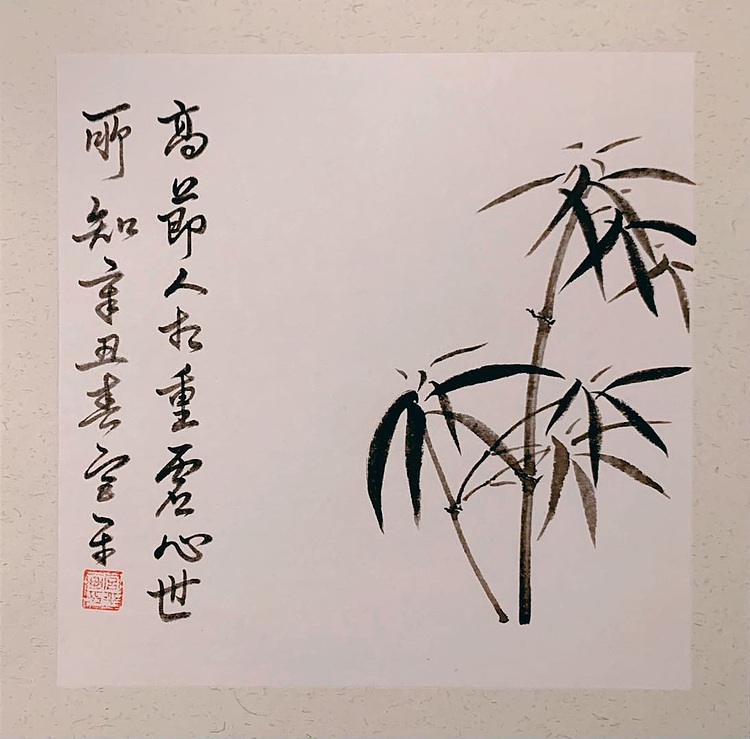 高節人相重虛心世
所知辛丑春宝平